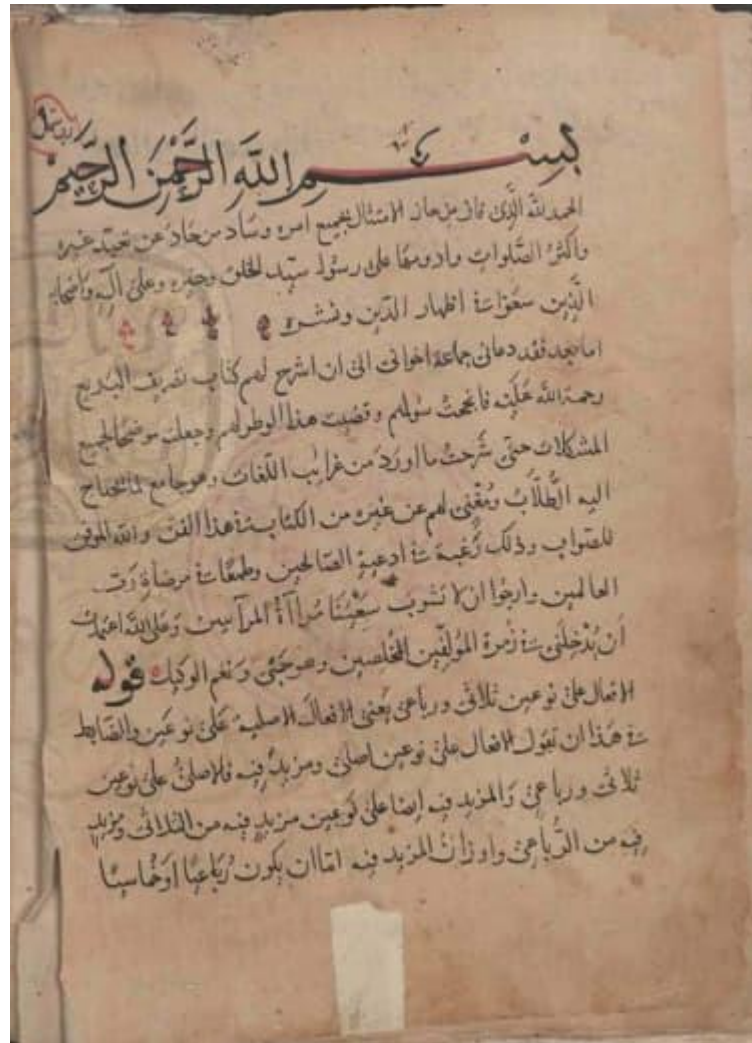 بسم الله الرحمن الرحيم
الحمد لله الذي فاز من حاز الامتثال بجميع امره وساد من حاد عن تعبد غيره
واكثر الصلوات وادومها على رسوله سيد الخلق وخيره وعلى آله واصحابه
الذين سعوا في اظهار الدين ونشره
اما بعد فقد دعاني جماعة اخواني الى ان اشرح لهم كتاب تصريف البديع
رحمة الله عليه فانجحت سولهم وقضيت هذا الوطر لهم وجعلت موضحا لجميع
المشكلات حتى شرحت ما اورد من غرائب اللغات وهو جامع لما تحتاج
اليه الطلاب ومغني لهم عن غيره من الكتاب في هذا الفن والله الموفق
للصواب وذلك رغبة في ادعية الصالحين وطمعا في مرضاة رب
العالمين وارجوا ان لا تشوب سعينا مراآة المرآسين وعلى الله اعتمادي
أن يدخلني في زمرة المؤلفين المخلصين وهو حسبي ونعم الوكيل قوله
الافعال على نوعين ثلاثي ورباعي يعني الافعال الاصلية على نوعين والضابط
في هذا ان تقول الافعال على نوعين اصلي ومزيد فيه فالاصلي على نوعين
ثلاثي ورباعي والمزيد فيه ايضا على نوعين مزيد فيه من الثلاثي ومزيد
فيه من الرباعي واوزان المزيد فيه اما ان يكون رباعيا او خماسيا